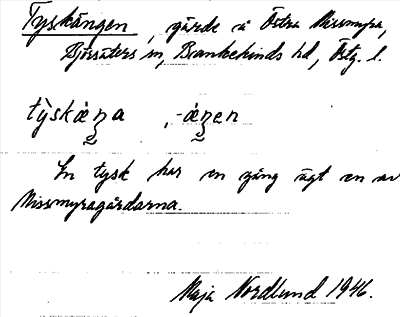 Tyskängen, gärde å Östra Missmyra,
Björsäters sn, Bankekinds hd, Östg. l.
tỳskæ̀ŋa, -æ̀ŋen
En tysk har en gång ägt en av
Missmyragårdarna.
Maja Nordlund 1946.